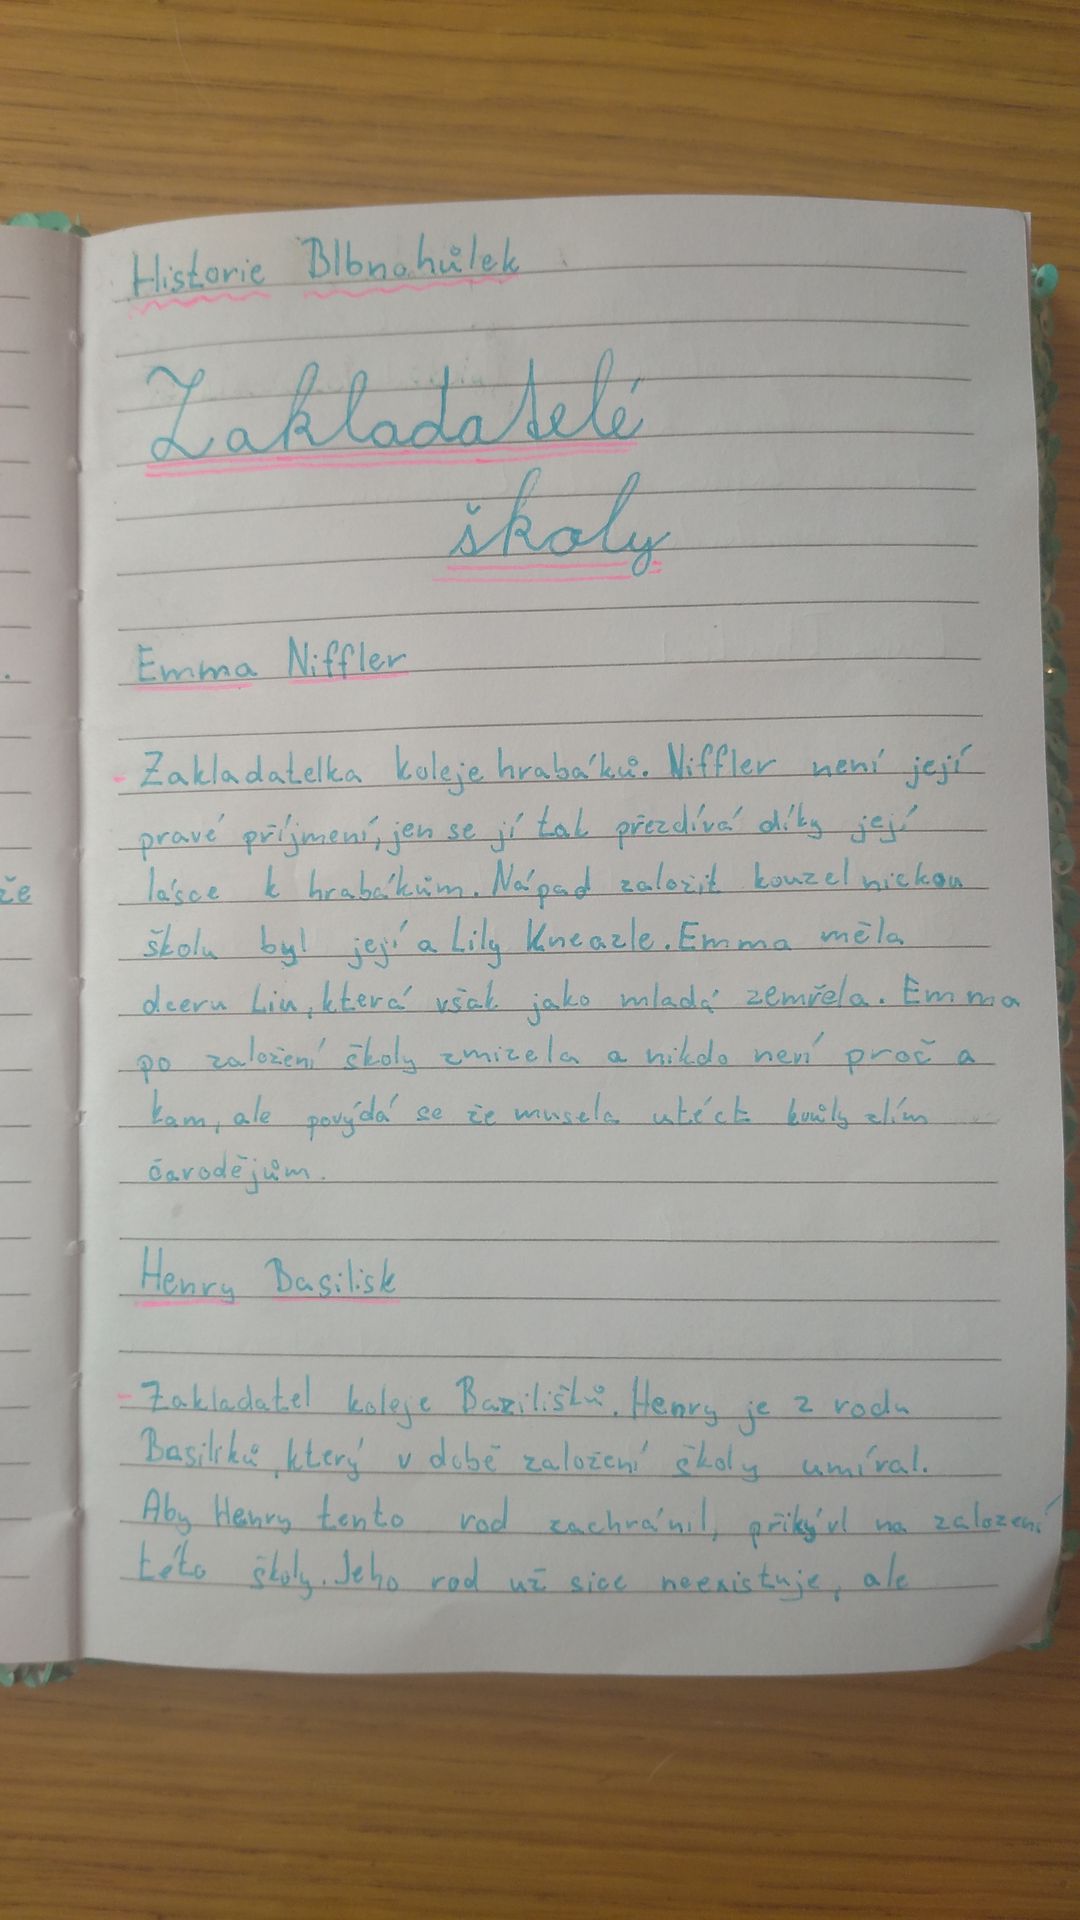 Historie Blbnohůlek
Zakladatelé
školy
Emma Niffler
.
- Zakladatelka koleje hrabáků. Niffler není její
pravé příjmení, jen se jí tak přezdívá díky její
že
lásce k hrabákům. Nápad založit kouzelnickou
školu byl její a Lily Kneazle. Emma měla
dceru Liu, která však jako mladá zemřela. Emma
po založení školy zmizela a nikdo není proč a
kam, ale povýdá se že musela utéct kvůly zlím
čarodějům.
Henry Basilisk
- Zakladatel koleje Bazilišků. Henry je z rodu
Basiliků, který v době založení školy umíral.
Aby Henry tento rod zachránil, přikývl na založení
této školy. Jeho rod už sice neexistuje, ale